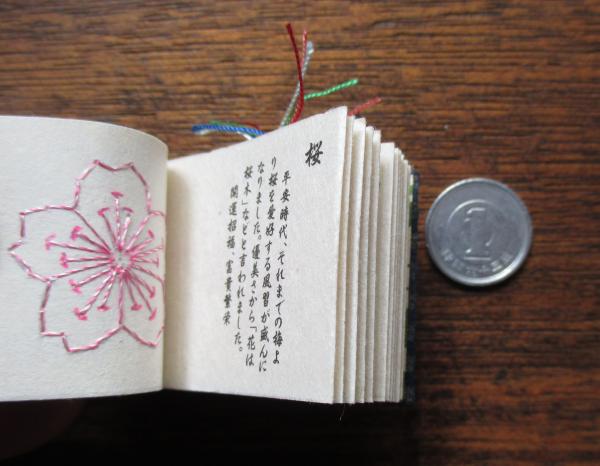 桜
平安時代、それまでの梅よ
り桜を愛好する風習が盛んに
なりました。優美さから「花は
桜木」などと言われました。
開運招福、富貴繁栄
1